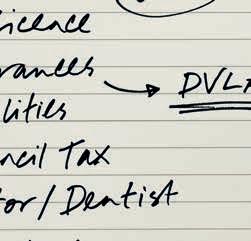 icence
urances → DVLA
lities
ncil Tax
tor/Dentist